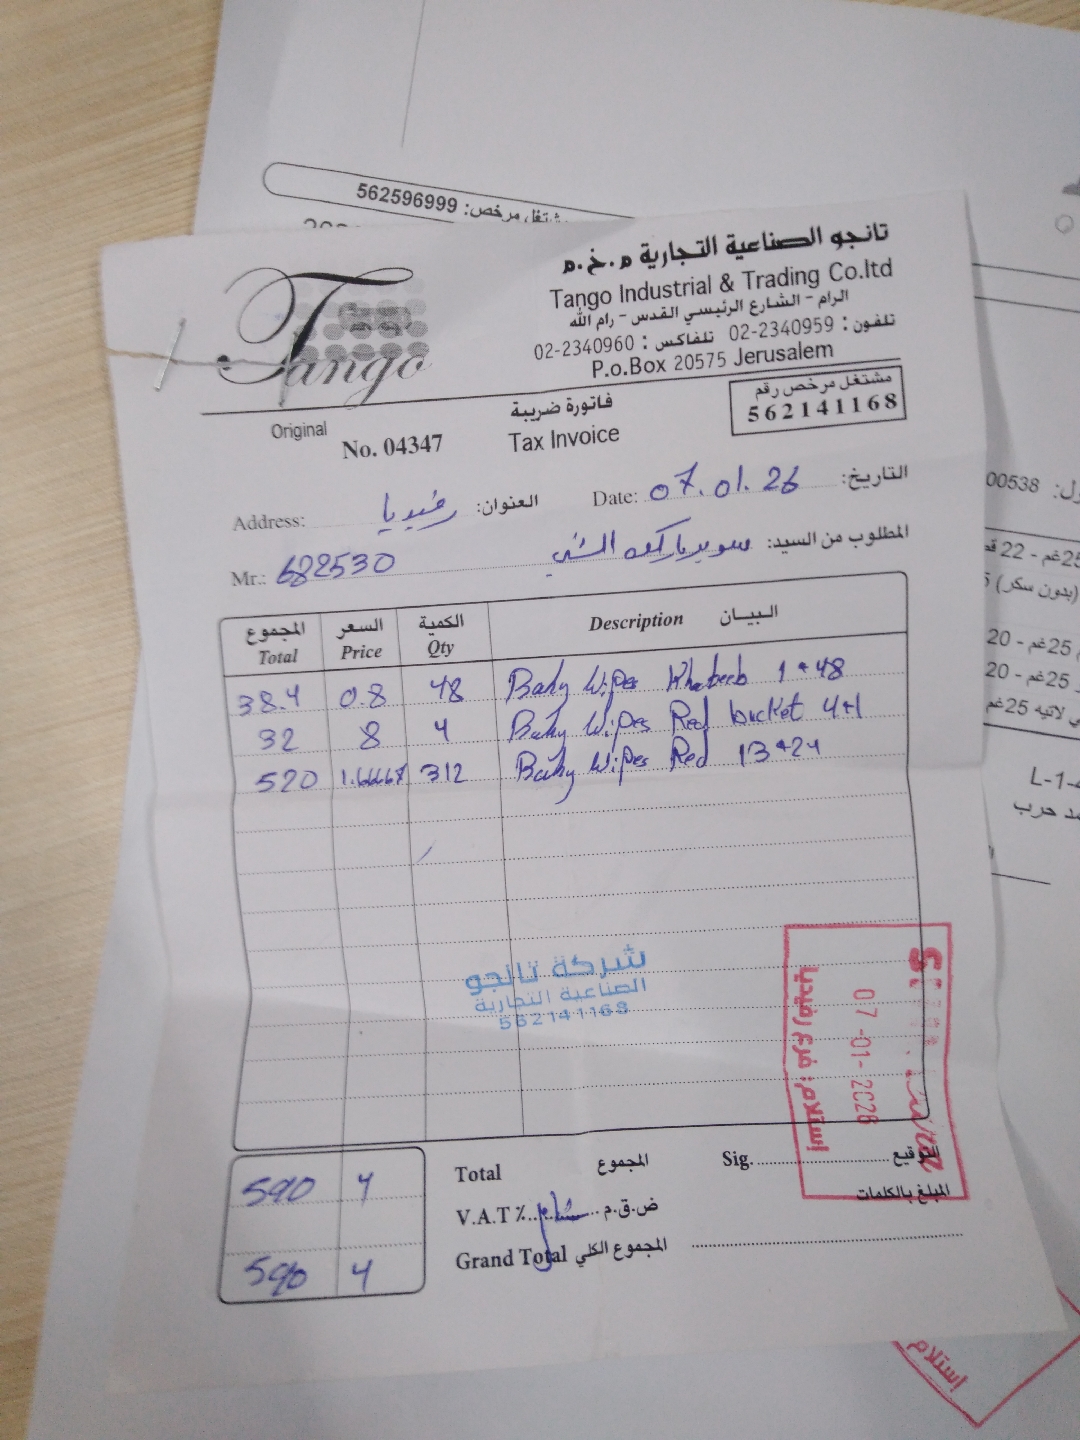 مشتغل مرخص: 562596999
تانجو الصناعية التجارية م.خ.م
Tango Industrial & Trading Co.ltd
الرام - الشارع الرئيسي القدس - رام الله
تلفون : 02-2340959 تلفاكس : 02-2340960
P.o.Box 20575 Jerusalem
Tango
مشتغل مرخص رقم
562141168
فاتورة ضريبة
Original No. 04347 Tax Invoice
التاريخ: Date: 07.01.26
العنوان: رفيديا Address:
المطلوب من السيد: سوبر ماركت الشني
Mr.: 682530
المجموع السعر الكمية البيـــان
Total Price Qty Description
38.4 0.8 48 Baby Wipes Khabeeb 1*48
32 8 4 Baby Wipes Red bucket 4+1
520 1.6667 312 Baby Wipes Red 13*24
شركة تانجو
الصناعية التجارية
562141168
07-01-2026
إستلام: فرع رفيديا
590 4 Total المجموع Sig. التوقيع
V.A.T٪ شامل ض.ق.م المبلغ بالكلمات
590 4 Grand Total المجموع الكلي
00538
25غم - 22
(بدون سكر)
25غم - 20
25غم - 20
لاتيه 25غم
L-1-
حرب
إستلام